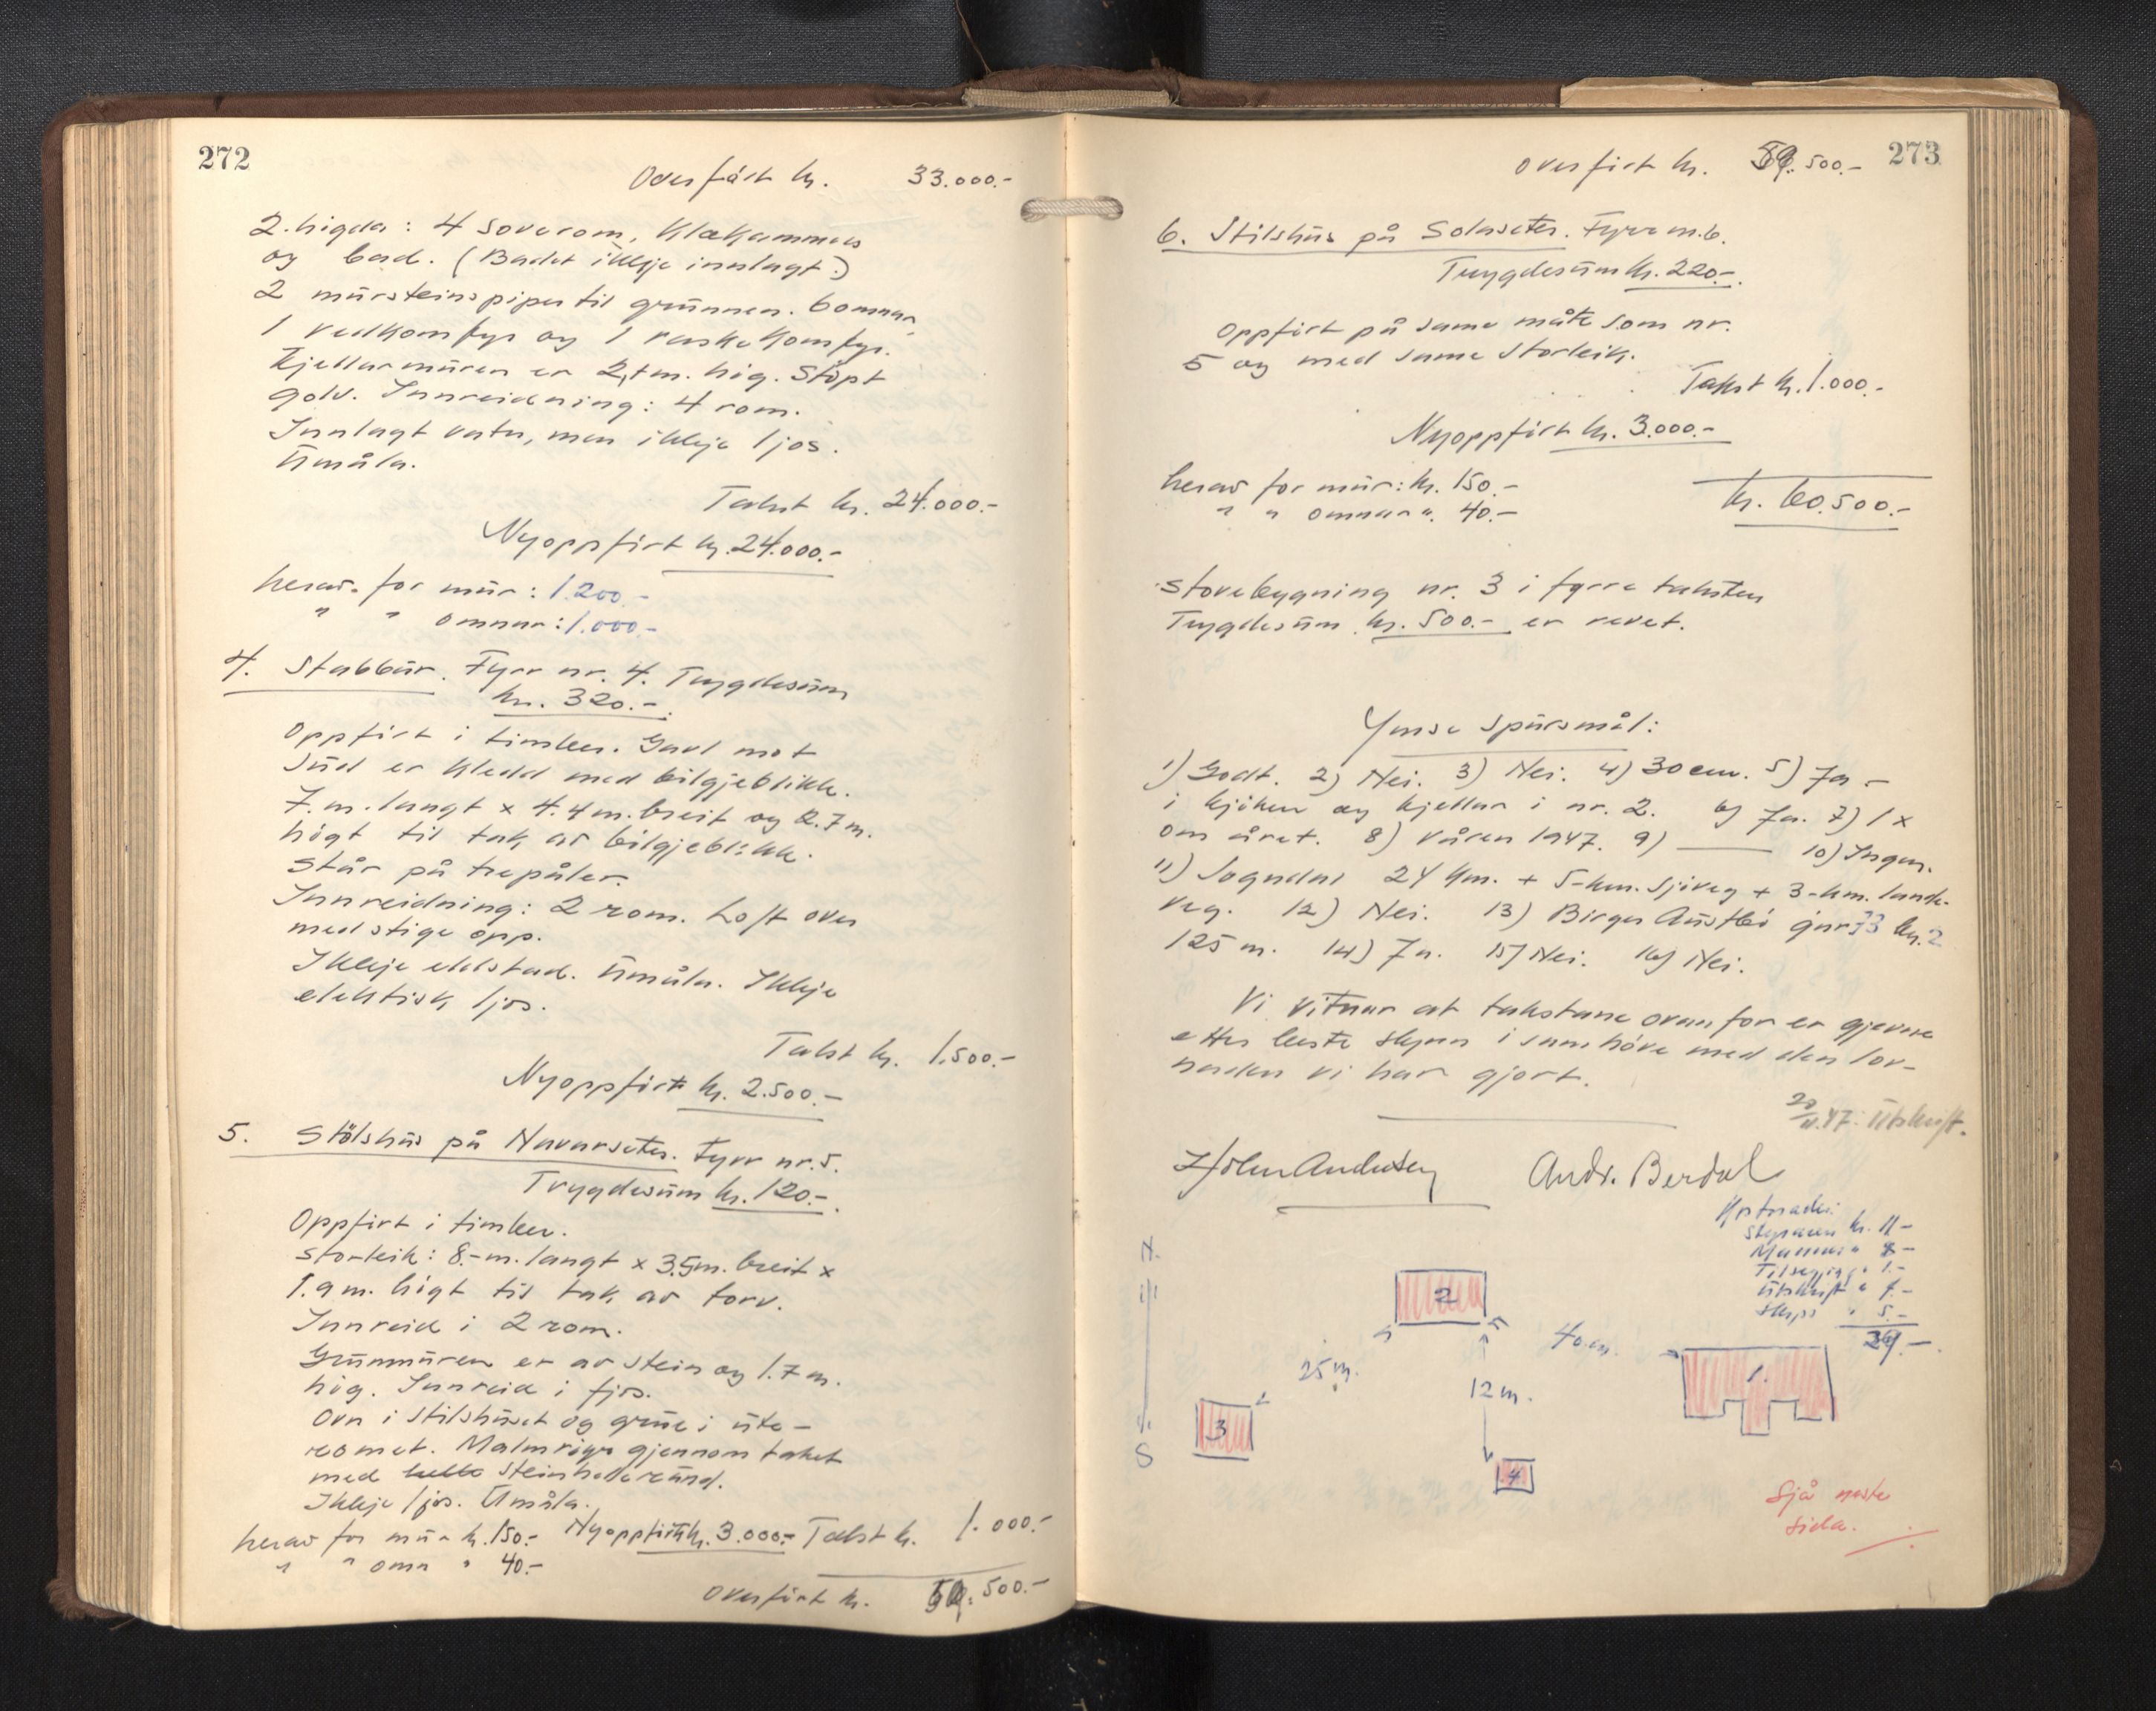 272
Overført kr. 33.000.-
2. høgda: 4 soverom, Klækammers
og bad. (Badet ikkje innlagt.)
2 mursteinspiper til grunnen. 6 omnar,
1 vedkomfyr og 1 vaskekomfyr.
Kjellarmuren er 2,1 m. høg. Støpt
golv. Innreidning: 4 rom.
Innlagt vatn, men ikkje ljos.
Umåla.
Takst kr. 24.000.-
Nyoppført kr. 24.000.-
herav for mur: 1.200.-
" " omnar: 1.000.-
4. Stabbur. Fyrr nr. 4. Trygdesum
kr. 320.-
Oppført i timber. Gavl mot
Sud er kledd med bølgjeblikk.
7. m. langt x 4.4 m. breit og 2.7 m.
høgt til tak av bølgjeblikk.
Står på trepåler.
Innreidning: 2 rom. Loft over
med stige opp.
Ikkje eldstad. Umåla. Ikkje
elektisk ljos.
Takst kr. 1.500.-
Nyoppført kr. 2.500.-
5. Stølshus på Navarseter. Fyrr nr. 5.
Trygdesum kr. 120.-
Oppført i timber.
Storleik: 8.- m. langt x 3.5 m. breit x
1.9 m. høgt til tak av torv.
Innreid i 2 rom.
Grunnmuren er av stein og 1.7 m.
høg. Innreid i fjos.
Ovn i stølshuset og grue i ute-
romet. Malmrøyr gjennom taket
med steinhelle rund.
Ikkje ljos. Umåla.
herav for mur kr. 150.- Nyoppført kr. 3.000.- Takst kr. 1.000.-
" " omn " 40.-
Overført kr. 59.500.-
273
Overført kr. 59.500.-
6. Stølshus på Solaseter. Fyrr nr. 6.
Trygdesum kr. 220.-
Oppført på same måte som nr.
5 og med same storleik.
Takst kr. 1.000.-
Nyoppført kr. 3.000.-
herav for mur: kr. 150.-
" " omnar " 40.-
kr. 60.500.-
Stovebygning nr. 3 i fyrre taksten
Trygdesum kr. 500.- er revet.
Ymse spursmål:
1) Godt. 2) Nei. 3) Nei. 4) 30 cm. 5) Ja -
i kjøken og kjellar i nr. 2. 6) Ja. 7) 1 x
om året. 8) Våren 1947. 9) — 10) Ingen.
11) Sogndal 24 km. + 5-km. sjøveg + 3-km. lande-
veg. 12) Nei. 13) Birger Austbø gnr 73 bn. 2
125 m. 14) Ja. 15) Nei. 16) Nei.
Vi vitnar at takstane ovanfor er gjevne
etter beste skynn i samhøve med den lov-
naden vi har gjort.
20/11.47. Utskrift.
John Andersen Andr. Berdal
Kostnader:
Skjønnen kr. 11-
8-
Tilsegjing " 1.-
Utskrift "
Skyss " 5.-
N.
S
2
25 m.
40 m.
12 m.
1.
3
4
Sjå neste
sida.